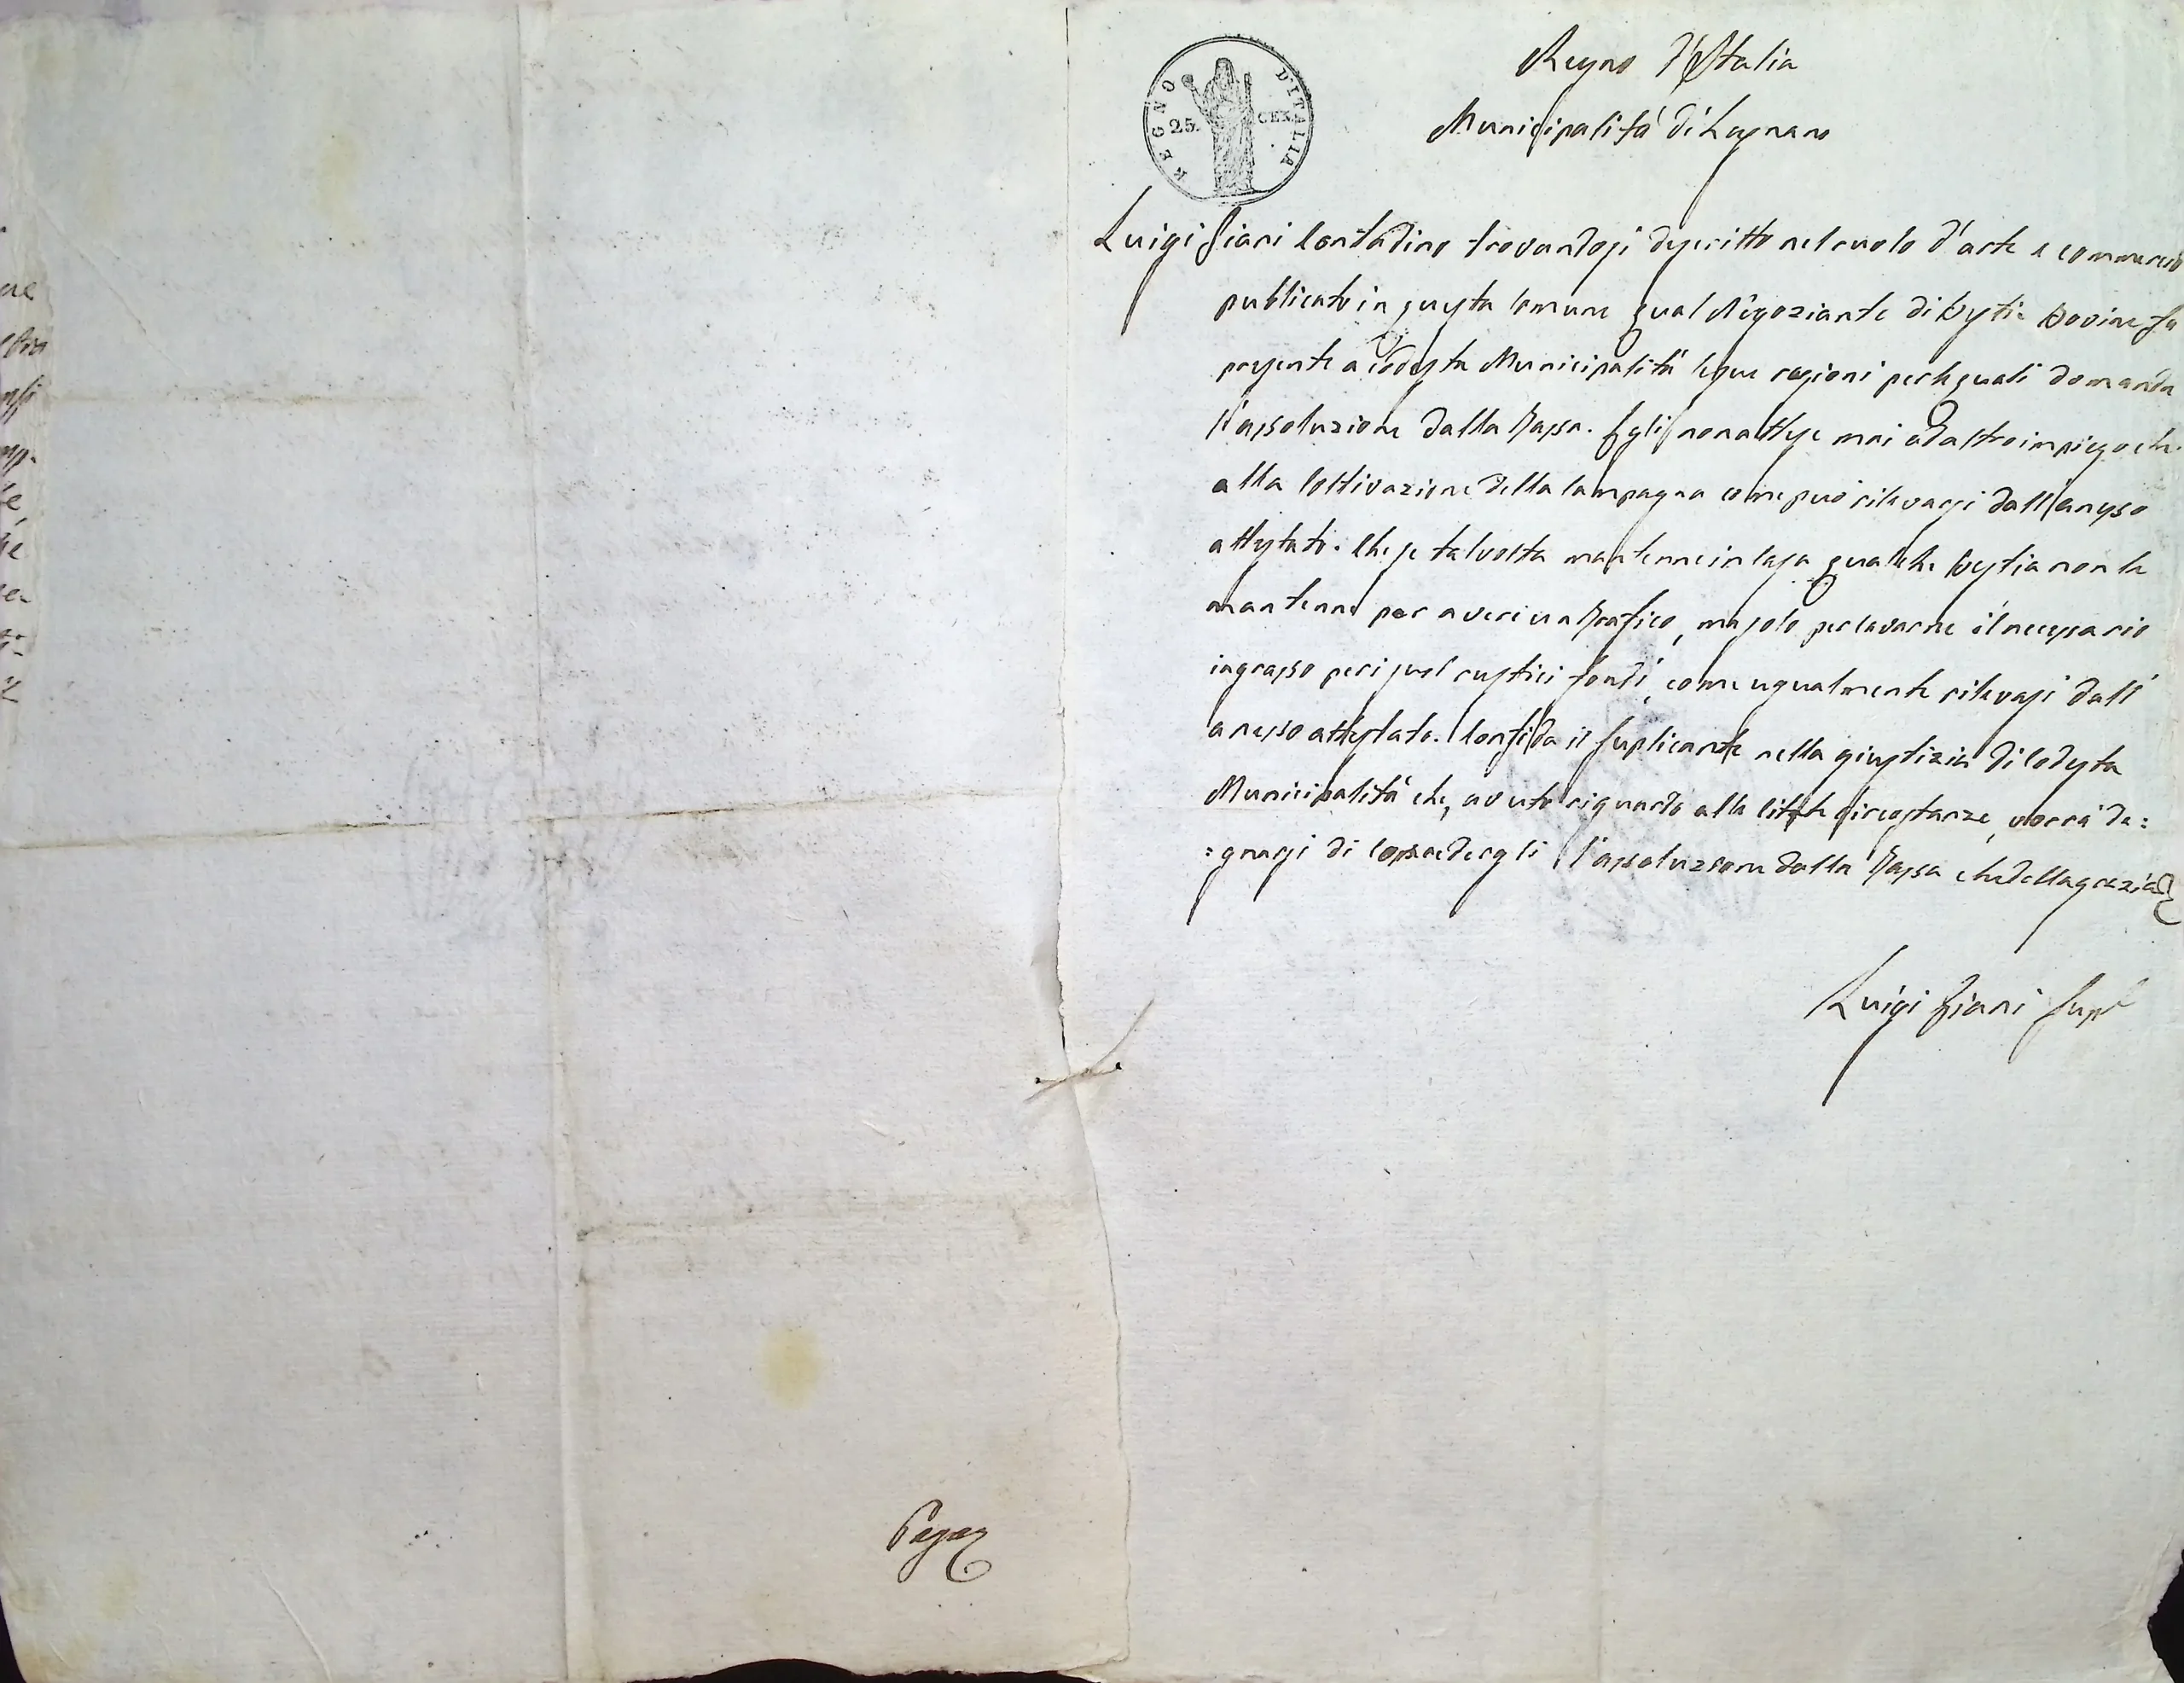 Regno d'Italia
Municipalità di Legnano
REGNO D'ITALIA
25. CEN.
Luigi contadino trovandosi descritto nel ruolo d'arte e commercio
publicato in questa comune qual Negoziante di bestie Bovine fa
presente a codesta Municipalità le sue ragioni per le quali domanda
l'assoluzione dalla Tassa. Egli non attese mai ad altro impiego che
alla Coltivazione della Campagna come può rilevarsi dall'anesso
attestato. Che se talvolta mantenne in casa qualche bestia non le
mantenne per averi un Trafico, ma solo per cavarne il necessario
ingrasso per i suoi rustici fondi, come ugualmente rilevasi dall'
anesso attestato. Confida il suplicante nella giustizia di codesta
Municipalità che, avuto riguardo alla circostanze, vorrà de:
:gnarsi di concedergli l'assoluzione dalla Tassa che della grazia
Luigi supe